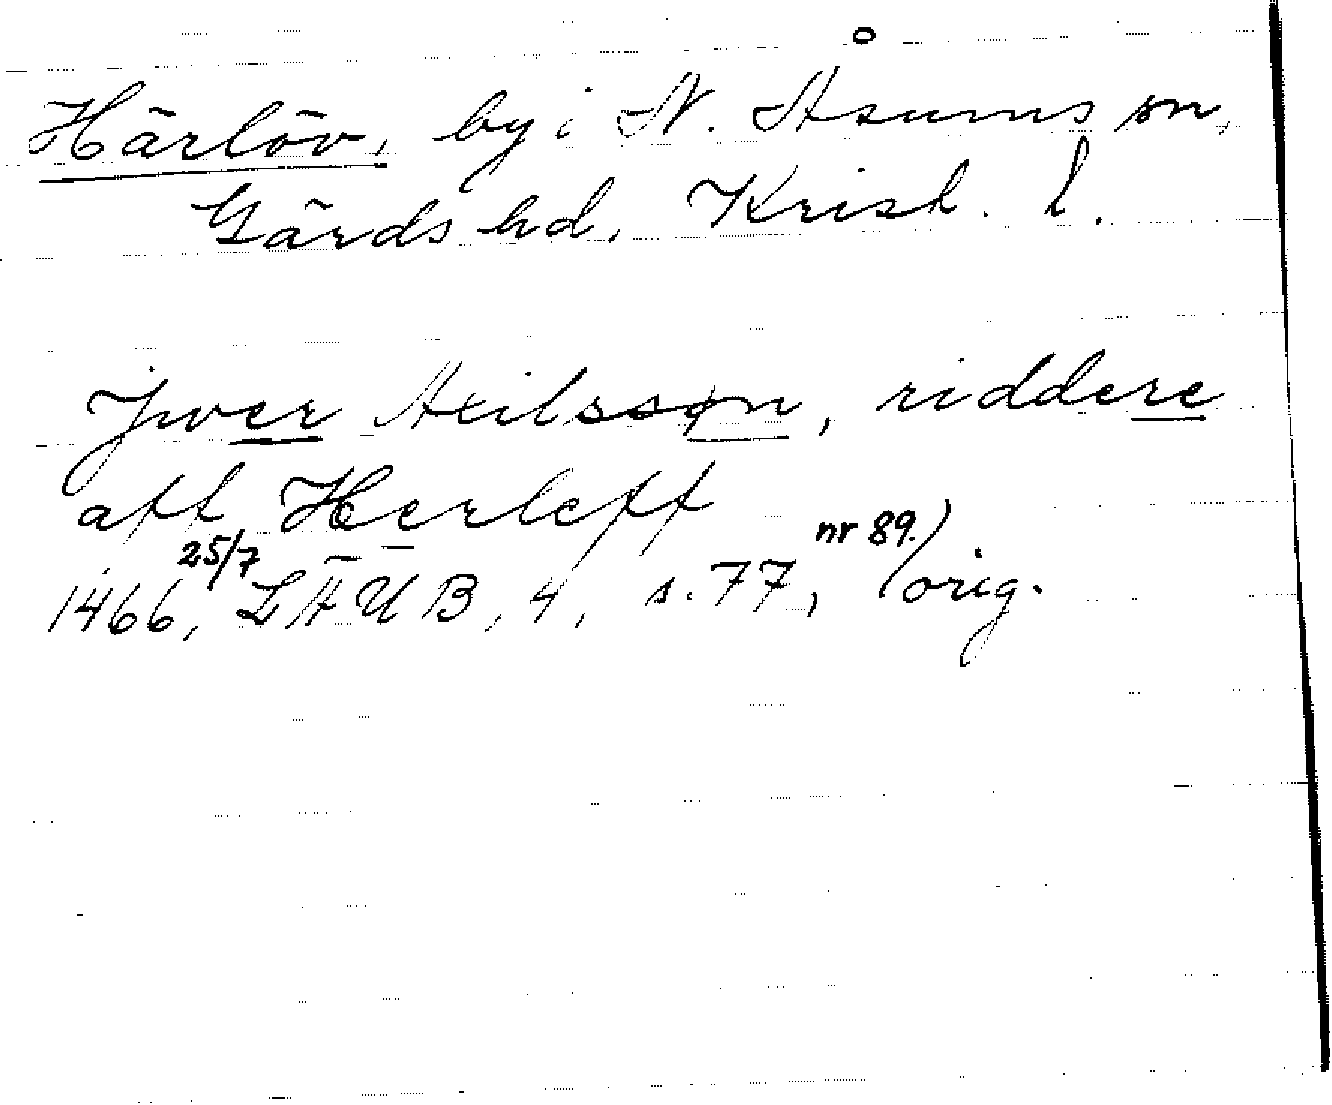 Härlöv, by i N. Åsums sn,
Gärds hd, Krist. l.
Jwer Axilsson, riddere
aff Herleff
1466, 25/7 LÄUB, 4, s. 77, nr 89. / orig.